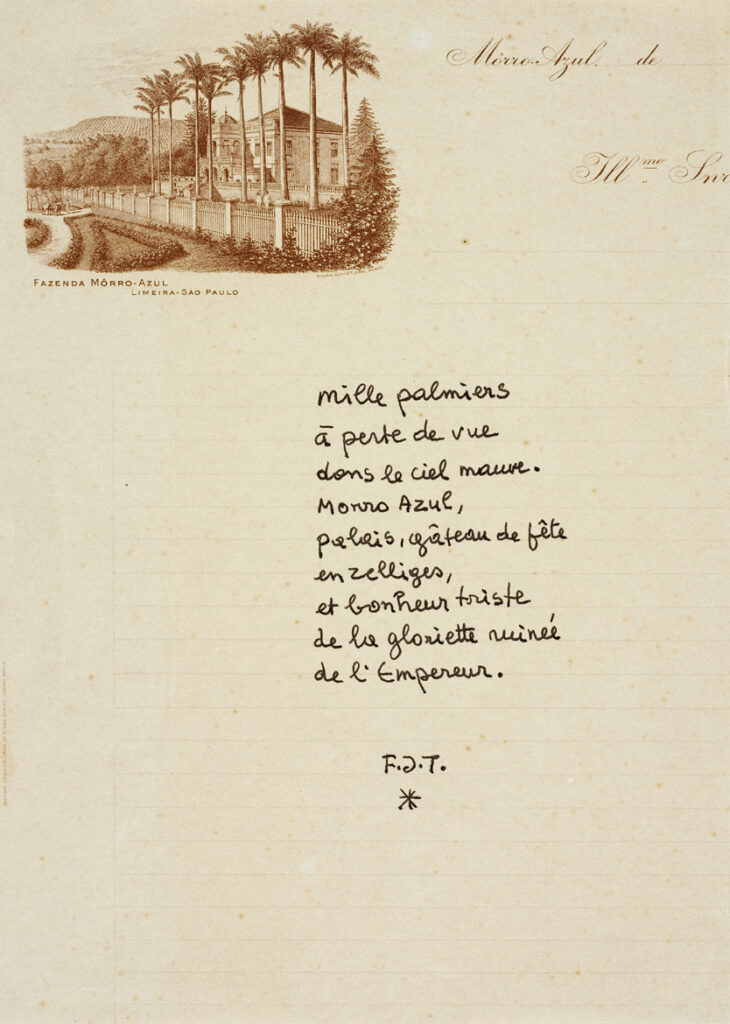 Môrro-Azul. de
Ill.mo Snr
FAZENDA MÔRRO-AZUL
LIMEIRA-SÃO PAULO
mille palmiers
à perte de vue
dans le ciel mauve.
Morro Azul,
palais, gâteau de fête
en zelliges,
et bonheur triste
de la gloriette ruinée
de l'Empereur.
F.J.T.
*